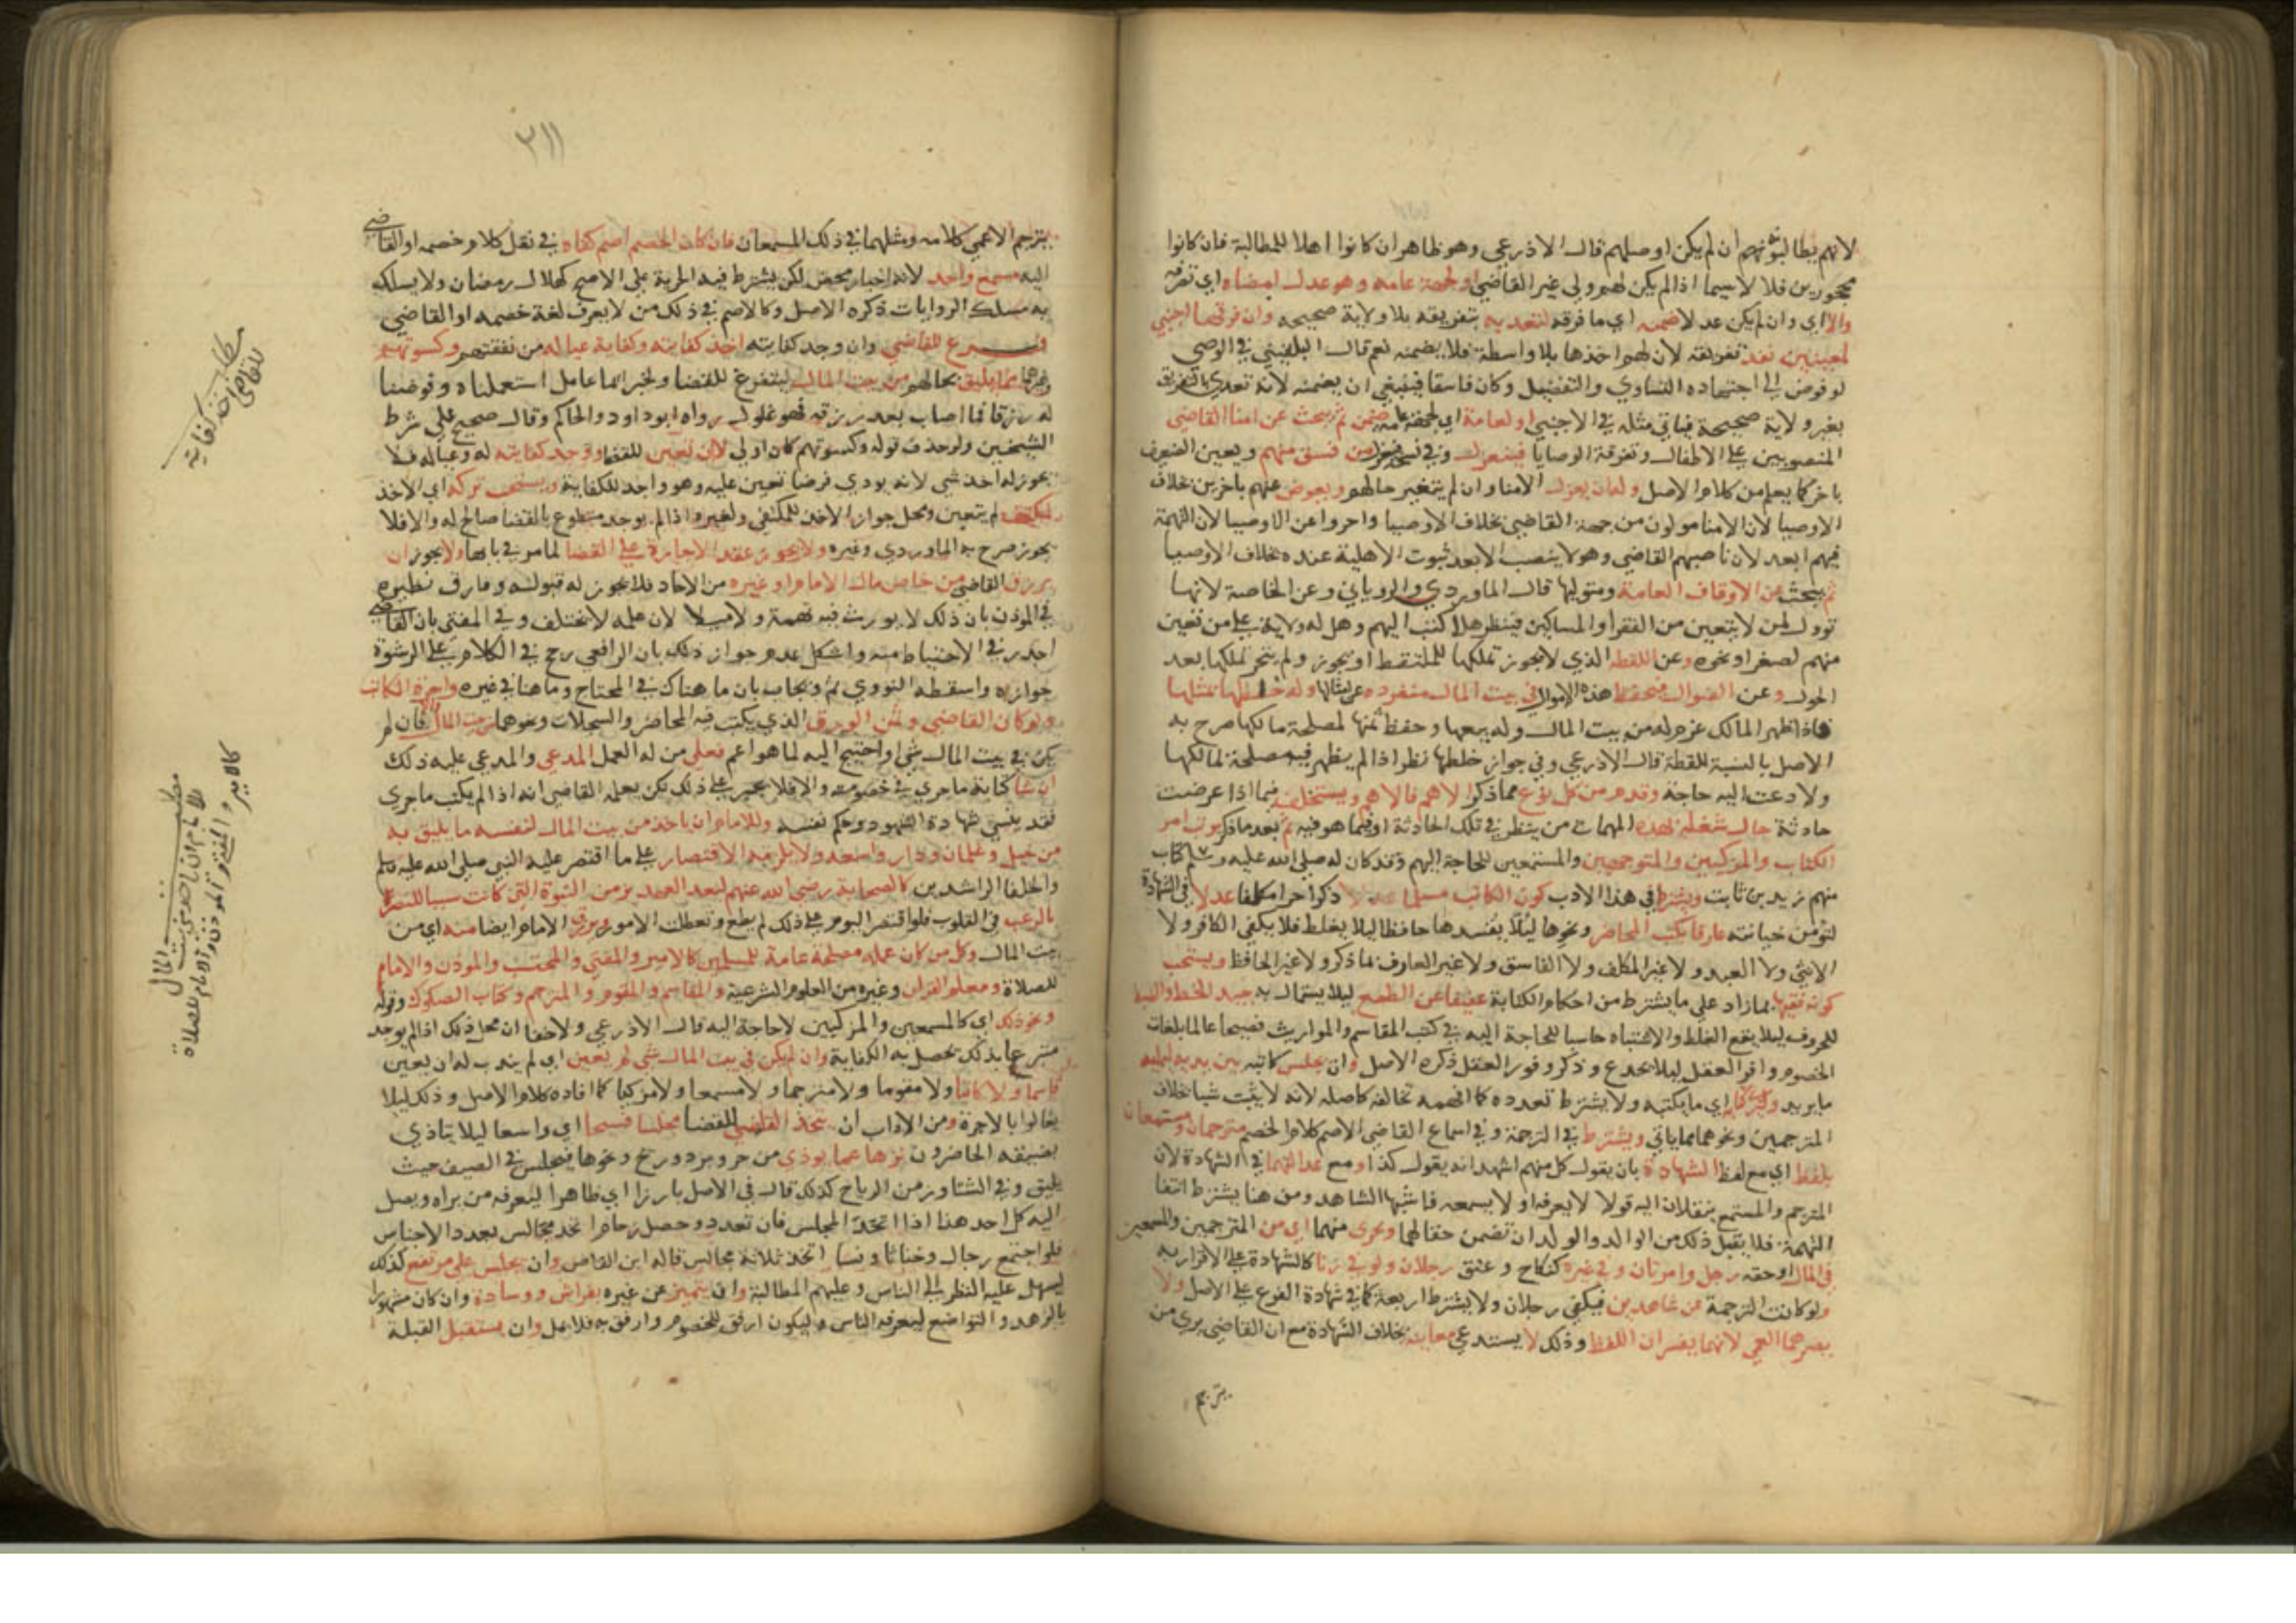 لانهم يطالبونهم ان لم يكن اوصلهم قال الاذرعي وهو ظاهر ان كانوا اهلا للمطالبة فان كانوا
محجورين فلا لاسيما اذا لم يكن لهم ولي غير القاضي او لجهة عامة وهو عدل امضاه اي تفرقته
والا اي وان لم يكن عدلا ضمنه اي ما فرقه لتعديه بتفريقه بلا ولاية صحيحة وان فرقها اجنبي
لمعينين نفذ تفريقه لان لهم اخذها بلا واسطة فلا يضمنه نعم قال البلقيني في الوصي
لو فوض الى اجتهاده التساوي والتفضيل وكان فاسقا فينبغي ان يضمنه لانه تعدى بالتفريق
بغير ولاية صحيحة فياتي مثله في الاجنبي او لعامة اي لجهة عامة ضمن ثم يبحث عن امنا القاضي
المنصوبين على الاطفال وتفرقة الوصايا فينعزل وفي نسخة فيعزل من فسق منهم ويعين الضعيف
باخر كما يعلم من كلام الاصل وله ان يعزل الامنا وان لم يتغير حالهم ويعوض عنهم باخرين بخلاف
الاوصيا لان الامنا مولون من جهة القاضي بخلاف الاوصيا واخروا عن الاوصيا لان التهمة
فيهم ابعد لان ناصبهم القاضي وهو لا ينصب الا بعد ثبوت الاهلية عنده بخلاف الاوصيا
ثم يبحث عن الاوقاف العامة ومتوليها قال الماوردي والروياني وعن الخاصة لانها
تؤول لمن لا يتعين من الفقرا والمساكين فينظر هل كتب اليهم وهل له ولاية على من تعين
منهم لصغر او نحوه وعن اللقطة الذي لا يجوز تملكها للملتقط او يجوز ولم يتخير تملكها بعد
الحول وعن الضوال فيحفظ هذه الاموال في بيت المال منفردة عن امثالها وله خلطها بمثلها
فاذا ظهر المالك غرم له من بيت المال وله بيعها وحفظ ثمنها لمصلحة مالكها صرح به
الاصل بالنسبة للقطة قال الاذرعي وفي جواز خلطها نظر اذا لم يظهر فيه مصلحة لمالكها
ولا دعت اليه حاجة وقدم من كل نوع مما ذكر الاهم فالاهم ويستخلف فيما اذا عرضت
حادثة حال شغله بهذه المهمات من ينظر في تلك الحادثة او فيما هو فيه ثم بعد ما ذكر يرتب امر
الكتاب والمزكيين والمترجمين والمستمعين للحاجة اليهم وقد كان له صلى الله عليه وسلم كتاب
منهم زيد بن ثابت ويشترط في هذا الادب كون الكاتب مسلما ذكرا حرا مكلفا عدلا في الشهادة
لتؤمن خيانته عارفا بكتب المحاضر ونحوها ليلا يفسدها حافظا ليلا يغلط فلا يكفي الكافر ولا
الانثى ولا العبد ولا غير المكلف ولا الفاسق ولا غير العارف بما ذكر ولا غير الحافظ ويستحب
كونه فقيها بما زاد على ما يشترط من احكام الكتابة عفيفا عن الطمع ليلا يستمال به جيد الخط والضبط
للحروف ليلا يقع الغلط والاشتباه حاسبا للحاجة اليه في كتب المقاسم والمواريث فصيحا عالما بلغات
الخصوم وافر العقل ليلا يخدع وذكر وفور العقل ذكره الاصل وان يجلس كاتبه بين يديه ليمليه
ما يريد وليرى ما يكتبه ولا يشترط تعدده كما افهمه تخالفه كاصله لانه لا يثبت شيا بخلاف
المترجمين ونحوهما مما ياتي ويشترط في الترجمة وفي اسماع القاضي الاصم كلام الخصم مترجمان ومستمعان
بلفظ اي مع لفظ الشهادة بان يقول كل منهم اشهد انه يقول كذا ومع عدالتهما في الشهادة لان
المترجم والمستمع ينقلان اليه قولا لا يعرفه او لا يسمعه فاشبها الشاهد ومن هنا يشترط انتفا
التهمة فلا يقبل ذلك من الوالد والولد ان تضمن حقا لهما ويجزى منهما اي من المترجمين والمسمعين
في المال او حقه رجل وامرتان وفي غيره كنكاح وعتق رجلان ولو في زنا كالشهادة على الاقرار به
ولو كانت الترجمة عن شاهدين فيكفي رجلان ولا يشترط اربعة كما في شهادة الفرع على الاصل ولا
يضرهما العمى لانهما يفسران اللفظ وذلك لا يستدعي معاينة بخلاف الشهادة مع ان القاضي يرى من
يترجم
٣١١
يترجم الاعمى كلامه ومثلهما في ذلك المسمعان فان كان الخصم اصم كفاه في نقل كلام خصمه او القاضي
اليه مسمع واحد لانه اخبار محض لكن يشترط فيه الحرية على الاصح كهلال رمضان ولا يسلك
به مسلك الروايات ذكره الاصل وكالاصم في ذلك من لا يعرف لغة خصمه او القاضي
فرع للقاضي وان وجد كفايته اخذ كفايته وكفاية عياله من نفقتهم وكسوتهم
وغيرها مما يليق بحالهم من بيت المال ليتفرغ للقضا ولخبر ايما عامل استعملناه وفرضنا
له رزقا فما اصاب بعد رزقه فهو غلول رواه ابو داود والحاكم وقال صحيح على شرط
الشيخين ولو حذف قوله وكسوتهم كان اولى لا ان تعين للقضا ووجد كفايته له ولعياله فلا
يجوز له اخذ شي لانه يودي فرضا تعين عليه وهو واجد للكفاية ويستحب تركه اي الاخذ
لمكتف لم يتعين ومحل جواز الاخذ للمكتفي ولغيره اذا لم يوجد متطوع بالقضا صالح له والا فلا
يجوز صرح به الماوردي وغيره ولا يجوز عقد الاجارة على القضا لما مر في بابها ولا يجوز ان
يرزق القاضي من خاص مال الامام او غيره من الاحاد فلا يجوز له قبوله وفارق نظيره
في المؤذن بان ذلك لا يورث فيه تهمة ولا ميلا لان عمله لا يختلف وفي المفتي بان القاضي
اجدر في الاحتياط منه واشكل عدم جواز ذلك بان الرافعي رجح في الكلام على الرشوة
جوازه واسقطه النووي ثم ويجاب بان ما هناك في المحتاج وما هنا في غيره واجرة الكاتب
ولو كان القاضي وثمن الورق الذي يكتب فيه المحاضر والسجلات ونحوهما من بيت المال فان لم
يكن في بيت المال شي او احتيج اليه لما هو اهم فعلى من له العمل المدعي والمدعى عليه ذلك
ان شا كتابة ما جرى في خصومته والا فلا يجبر على ذلك لكن يعلمه القاضي انه اذا لم يكتب ما جرى
فقد ينسى شهادة الشهود وحكم نفسه وللامام ان ياخذ من بيت المال لنفسه ما يليق به
من خيل وغلمان ودار واسعة ولا يلزمه الاقتصار على ما اقتصر عليه النبي صلى الله عليه وسلم
والخلفا الراشدين كالصحابة رضي الله عنهم لبعد العهد بزمن النبوة التي كانت سببا للنصر
بالرعب في القلوب فلو اقتصر اليوم على ذلك لم يطع وتعطلت الامور ويرزق الامام ايضا منه اي من
بيت المال وكل من كان عمله مصلحة عامة للمسلمين كالامير والمفتي والمحتسب والموذن والامام
للصلاة ومعلم القران وغيره من العلوم الشرعية والقاسم والمقوم والمترجم وكتاب الصكوك وقوله
ونحو ذلك اي كالمسمعين والمزكيين لا حاجة اليه قال الاذرعي ولا خفا ان محل ذلك اذا لم يوجد
متبرع بذلك تحصل به الكفاية وان لم يكن في بيت المال شي لم يعين اي لم يندب له ان يعين
قاسما ولا كاتبا ولا مقوما ولا مترجما ولا مسمعا ولا مزكيا كما افاده كلام الاصل وذلك ليلا
يغالوا بالاجرة ومن الاداب ان يتخذ القاضي للقضا مجلسا فسيحا اي واسعا ليلا يتاذى
بضيقه الحاضرون نزها عما يوذي من حر وبرد وريح ونحوها فيجلس في الصيف حيث
يليق وفي الشتا وزمن الرياح كذلك قال في الاصل بارزا اي ظاهرا ليعرفه من يراه ويصل
اليه كل احد هذا اذا اتحد المجلس فان تعدد وحصل زحام اتخذ مجالس بعدد الاجناس
فلو اجتمع رجال وخناثا ونسا اتخذ ثلاثة مجالس قاله ابن القاص وان يجلس على مرتفع كذلك
ليسهل عليه النظر الى الناس وعليهم المطالبة وان يتميز عن غيره بفراش ووسادة وان كان مشهورا
بالزهد والتواضع ليعرفه الناس وليكون ارفق للخصوم وارفق به فلا يمل وان يستقبل القبلة
مطلب
للقاضي اخذ كفايته
مطلب
للامام ان ياخذ من بيت المال
كالامير والمفتي والموذن والامام للصلاة